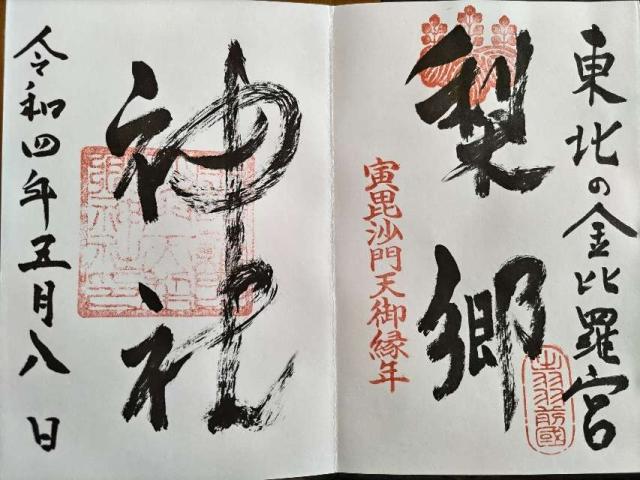 東北の金比羅宮
梨郷
寅毘沙門天御縁年
出羽前國
神社
令和四年五月八日